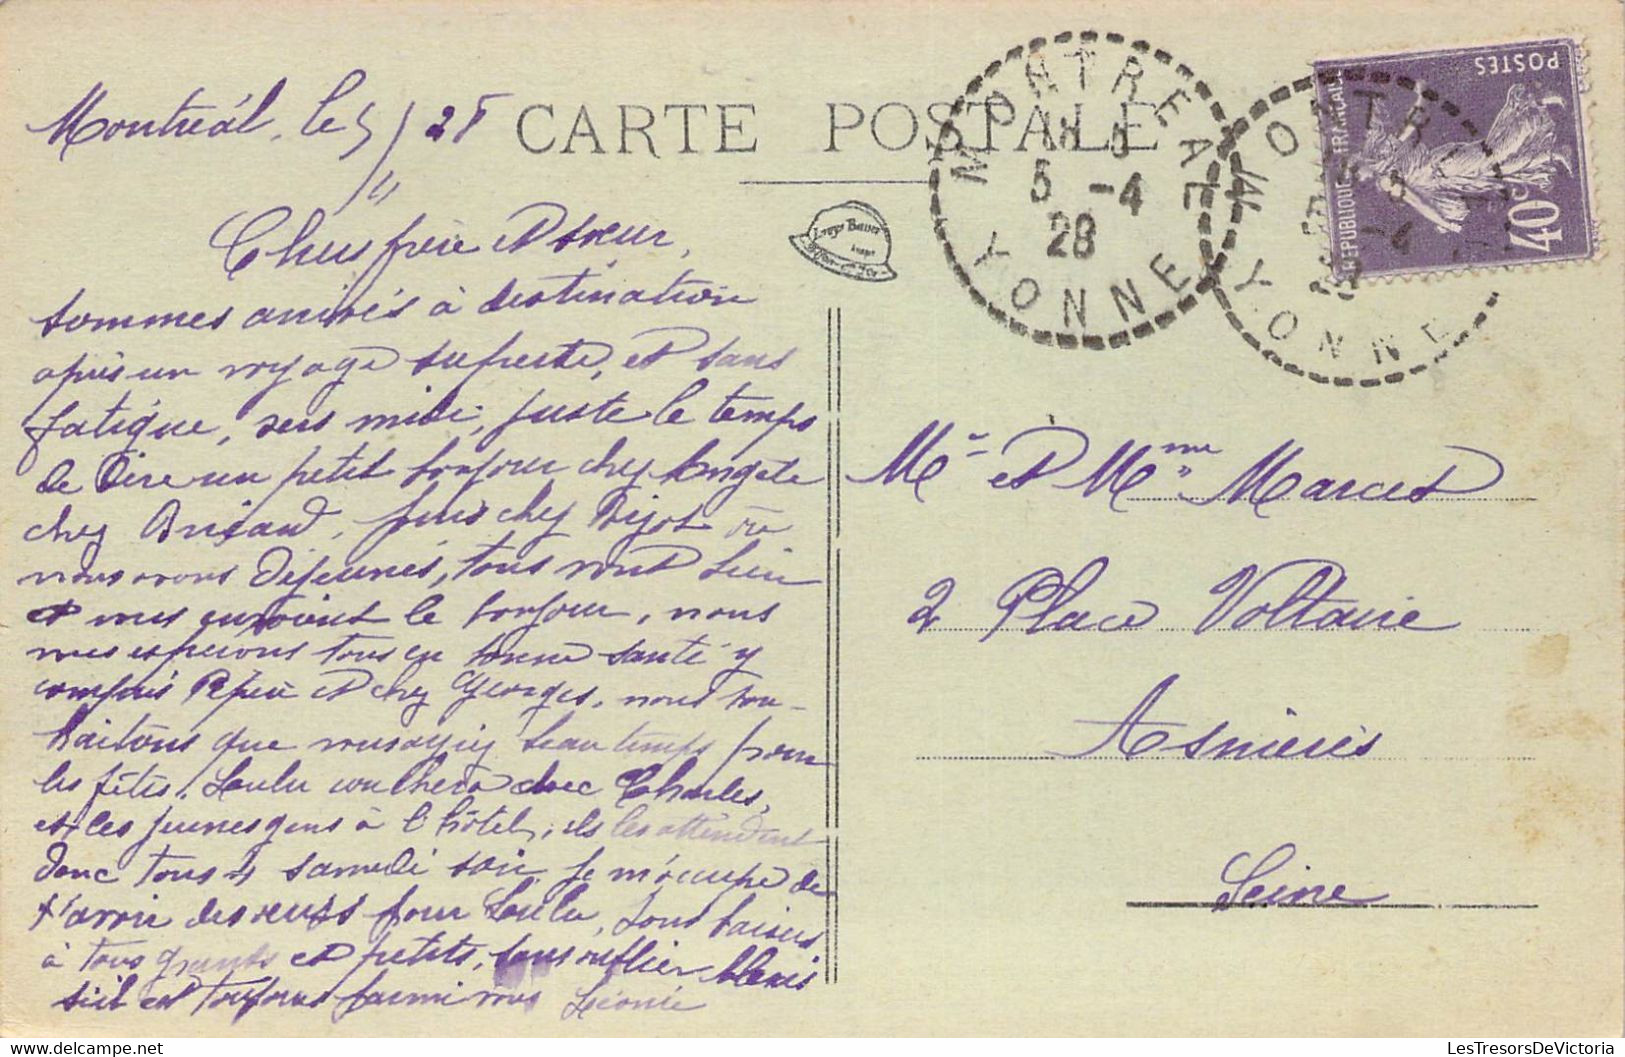 Montréal, le 5/4 28
CARTE POSTALE
MONTREAL
18 5
5 -4
28
YONNE
MONTREAL
5 -4
YONNE
POSTES
REPUBLIQUE FRANÇAISE
40c
Chers frère et sœur,
sommes arrivés à destination
après un voyage superbe, et sans
fatigue, vers midi, juste le temps
de dire un petit bonjour chez Angèle
chez Briand, puis chez Bijot où
nous avons déjeunés, tous vont bien
et vous envoient le bonjour, nous
vous espérons tous en bonne santé y
compris Pépère et chez Georges, nous sou-
haitons que vous ayiez beau temps pour
les fêtes. Loulu couchera chec Charles,
et les jeunes gens à l'hôtel, ils les attendent
donc tous 4 samedi soir. Je m'occupe de
t'avoir des œufs pour Loulu, bons baisers
à tous grands et petits, sans oublier Alexis
s'il est toujours parmi vous Léonie
Mr et Mme Marcel
2 Place Voltaire
Asnières
Seine
LesTresorsDeVictoria